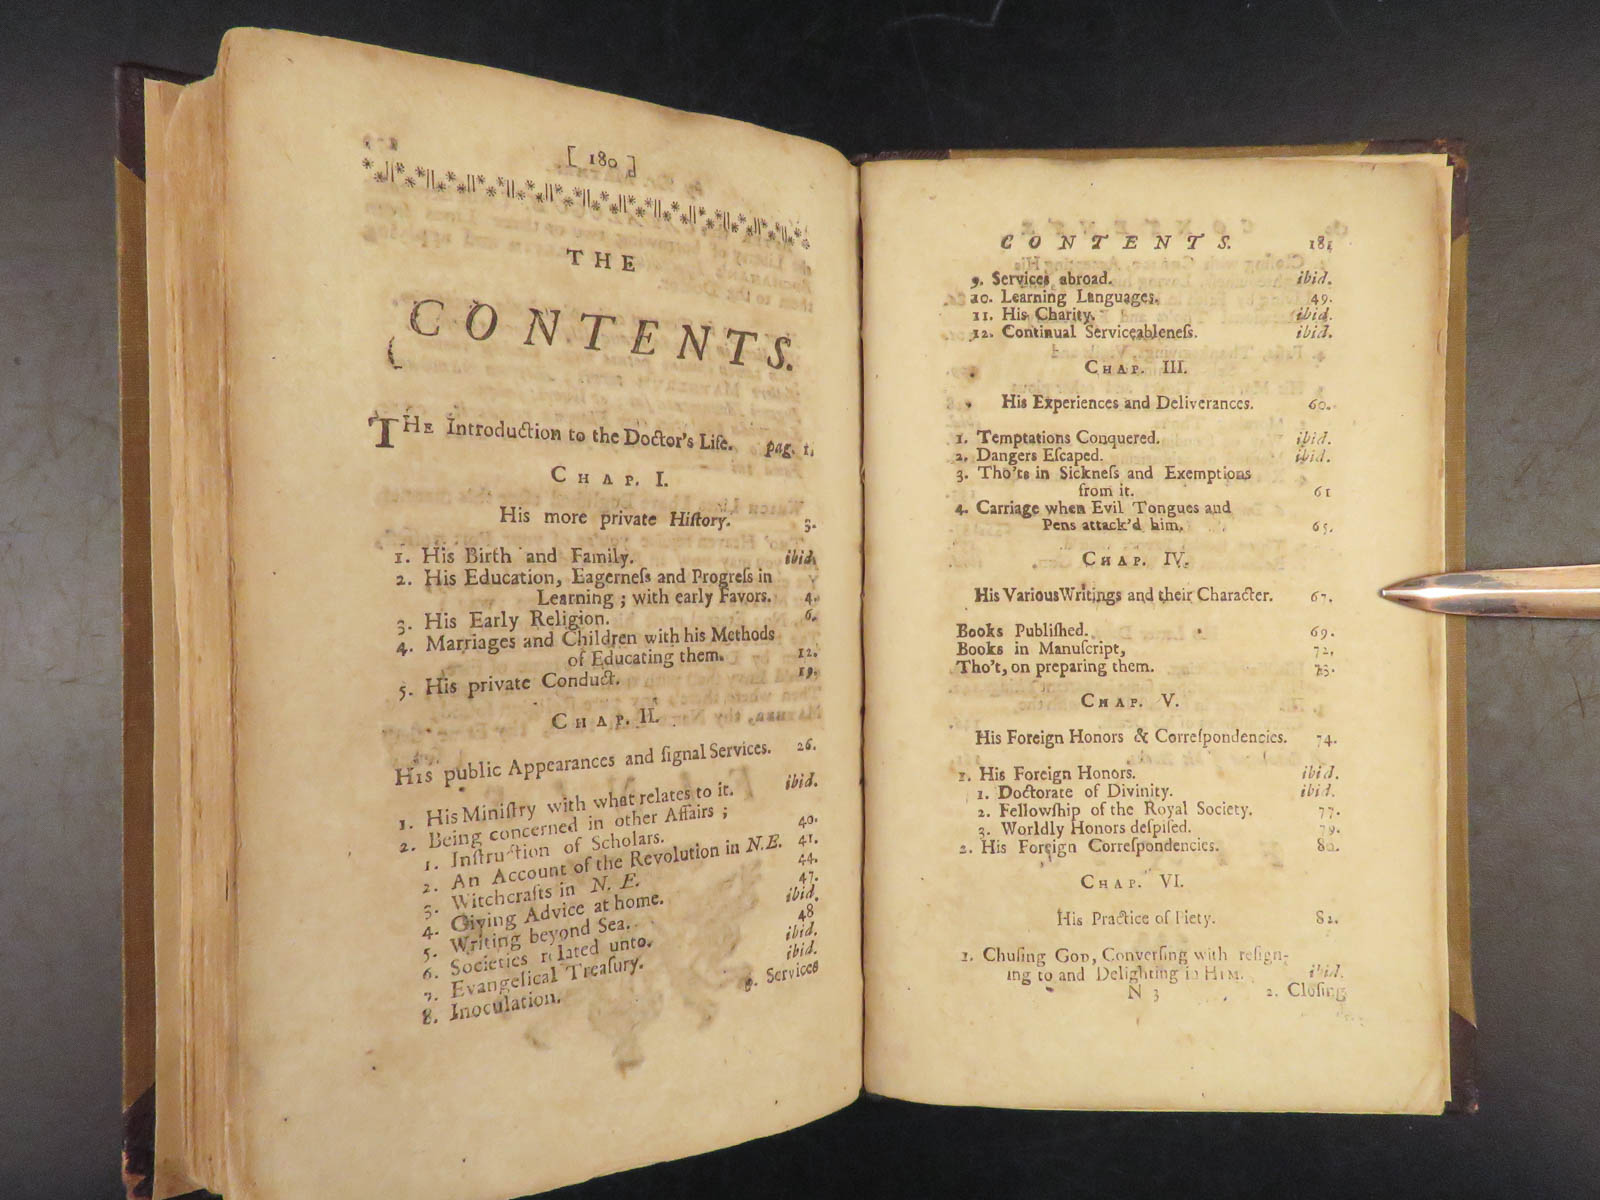 [ 180 ]
THE
CONTENTS.
THE Introduction to the Doctor's Life. pag. 1.
CHAP. I.
His more private Hiſtory. 3.
1. His Birth and Family. ibid.
2. His Education, Eagerneſs and Progreſs in
Learning ; with early Favors. 4.
3. His Early Religion. 6.
4. Marriages and Children with his Methods
of Educating them. 12.
5. His private Conduct. 19.
CHAP. II.
His public Appearances and ſignal Services. 26.
1. His Miniſtry with what relates to it. ibid.
2. Being concerned in other Affairs ;
1. Inſtruction of Scholars. 40.
2. An Account of the Revolution in N.E. 41.
3. Witchcrafts in N. E. 44.
4. Giving Advice at home. 47.
5. Writing beyond Sea. ibid.
6. Societies related unto. 48
7. Evangelical Treaſury. ibid.
8. Inoculation. ibid.
9. Services
CONTENTS. 181
9. Services abroad. ibid.
10. Learning Languages. 49.
11. His Charity. ibid.
12. Continual Serviceableneſs. ibid.
CHAP. III.
His Experiences and Deliverances. 60.
1. Temptations Conquered. ibid.
2. Dangers Eſcaped. ibid.
3. Tho'ts in Sickneſs and Exemptions
from it. 61
4. Carriage when Evil Tongues and
Pens attack'd him. 65.
CHAP. IV.
His Various Writings and their Character. 67.
Books Publiſhed. 69.
Books in Manuſcript, 72.
Tho't, on preparing them. 73.
CHAP. V.
His Foreign Honors & Correſpondencies. 74.
1. His Foreign Honors. ibid.
1. Doctorate of Divinity. ibid.
2. Fellowſhip of the Royal Society. 77.
3. Worldly Honors deſpiſed. 79.
2. His Foreign Correſpondencies. 80.
CHAP. VI.
His Practice of Piety. 82.
1. Chuſing GOD, Converſing with reſign-
ing to and Delighting in HIM. ibid.
N 3 2. Cloſing